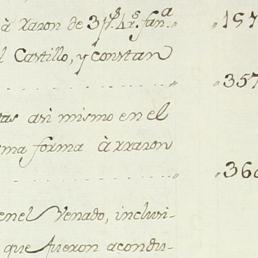 à razon de 37 4 fan.a 157
l Castillo, y constan
357
tas asi mismo en el
sma forma à razon
366
en el Venado, inclusi-
que fueron acondu-